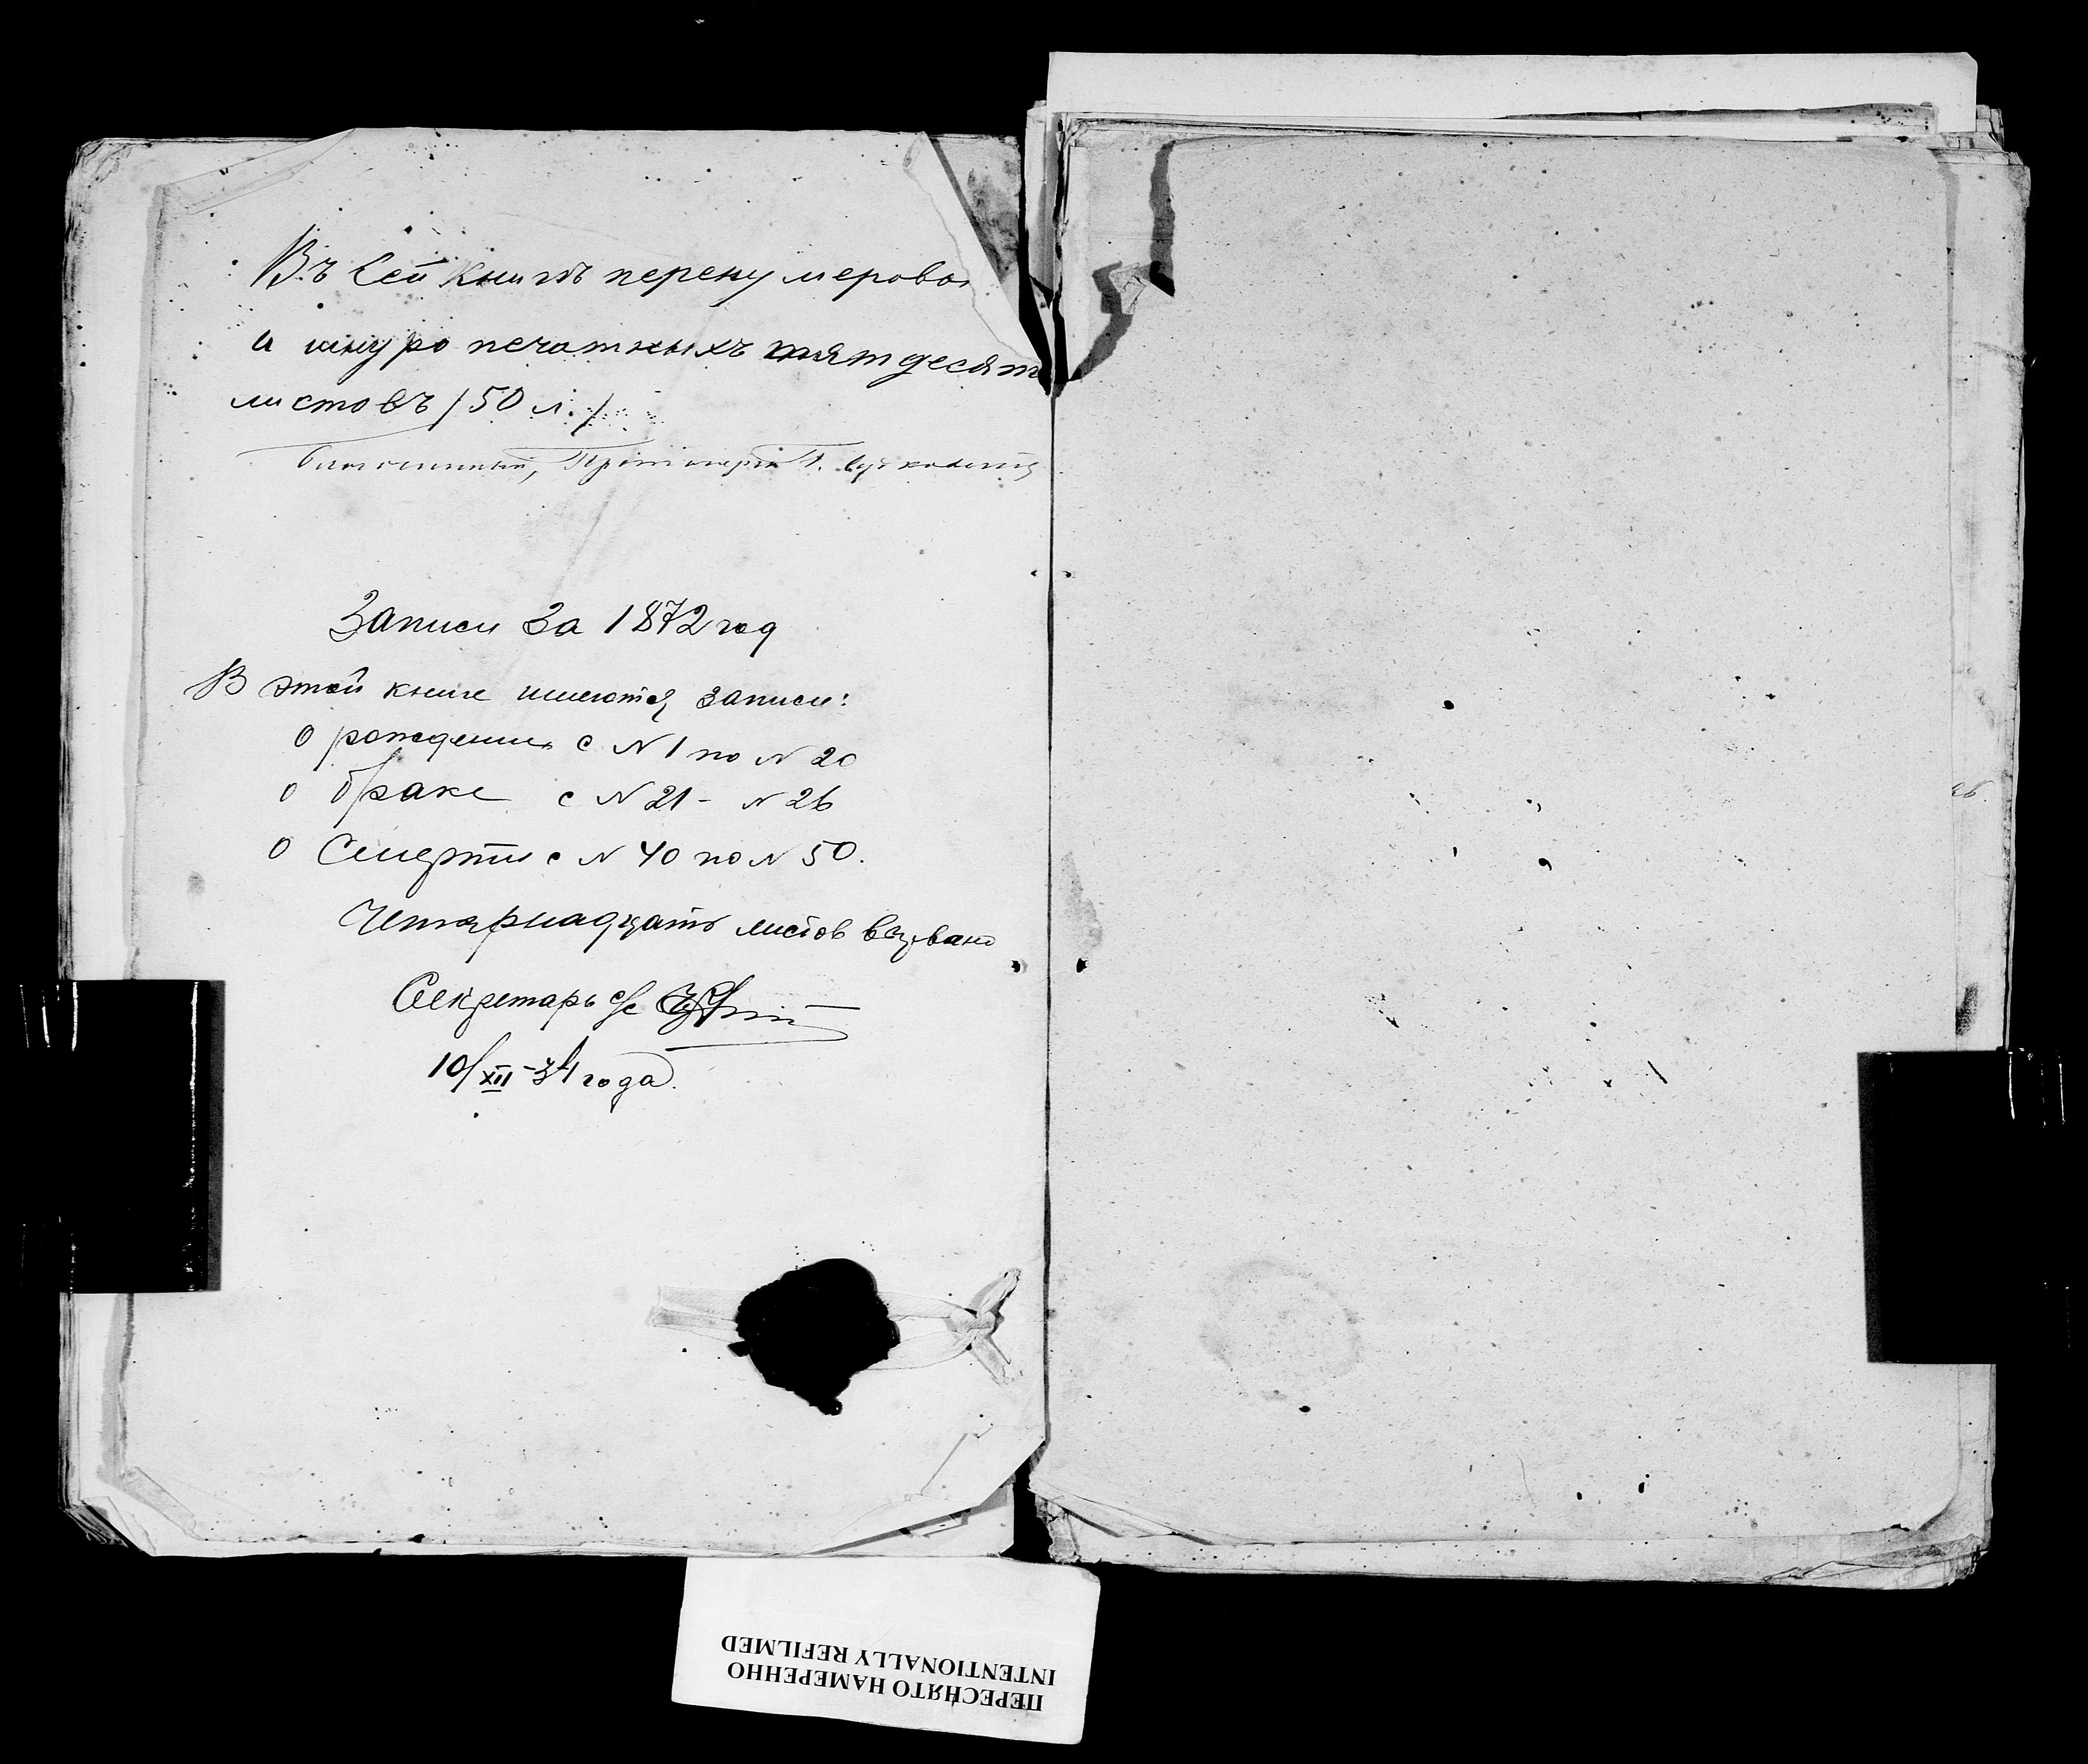 Въ сей книгѣ перенумерова
и шнуро печатныхъ пятдесят
листовъ / 50 л. /
Благочинный, Протоиерей
Записи за 1872 год
В этой книге имеются записи:
О рождении с N 1 по N 20
О браке с N 21 - N 26
О Смерти с N 40 по N 50.
Четырнадцать листов вырвано
Секретарь с/с
10/XII-34 года.
ПЕРЕСНЯТО НАМЕРЕННО
INTENTIONALLY REFILMED